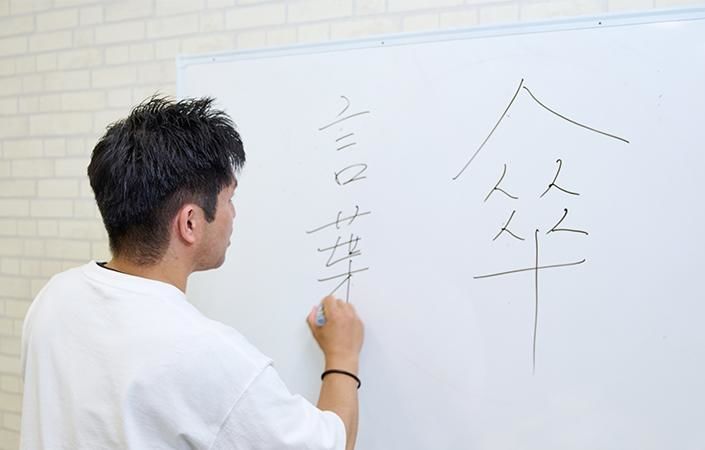 傘
言葉